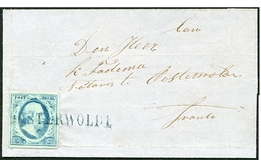 Aan
Den Heer
notaris te Oosterwolde
franco
POST ZEGEL
OOSTERWOLDE